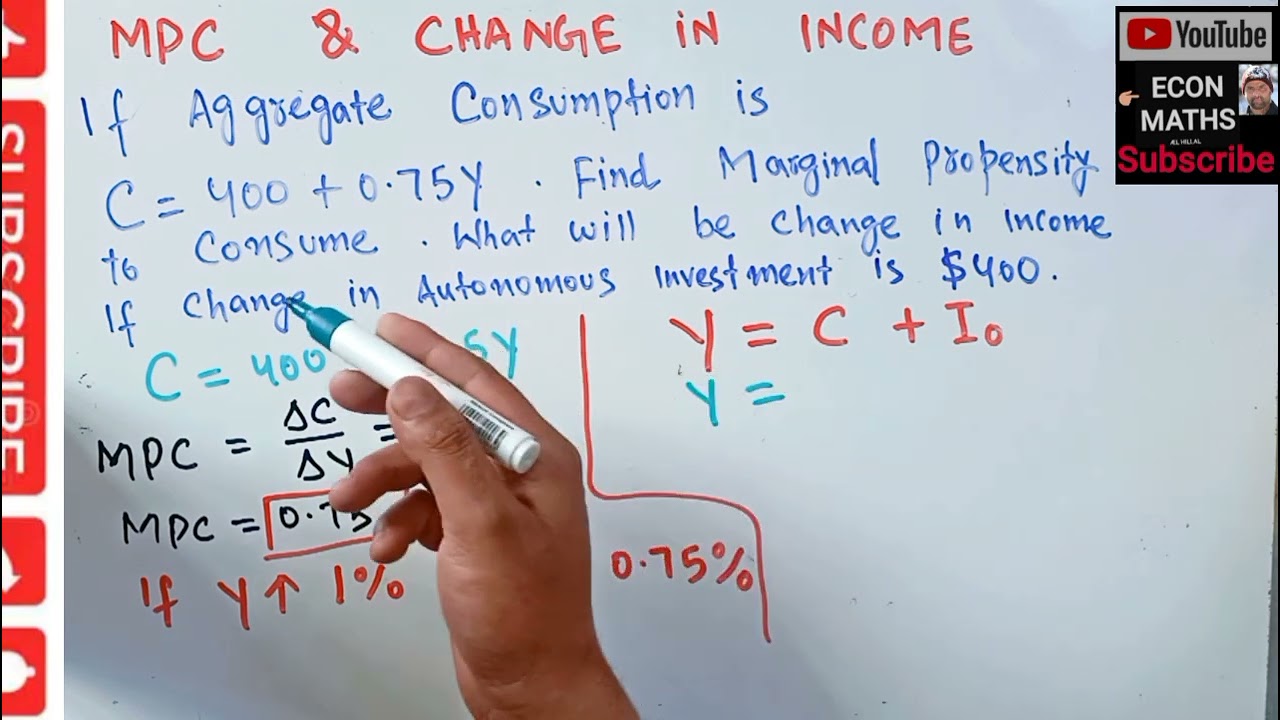 MPC & CHANGE IN INCOME
If Aggregate Consumption is
C = 400 + 0.75Y . Find Marginal Propensity
to Consume . What will be change in Income
If Change in Autonomous Investment is $400.
C = 400 5Y
MPC = ΔC/ΔY =
MPC = 0.75
If Y ↑ 1% 0.75%
Y = C + I₀
Y =
YouTube
ECON
MATHS
ÆL HILLAL
Subscribe
SUBSCRIBE